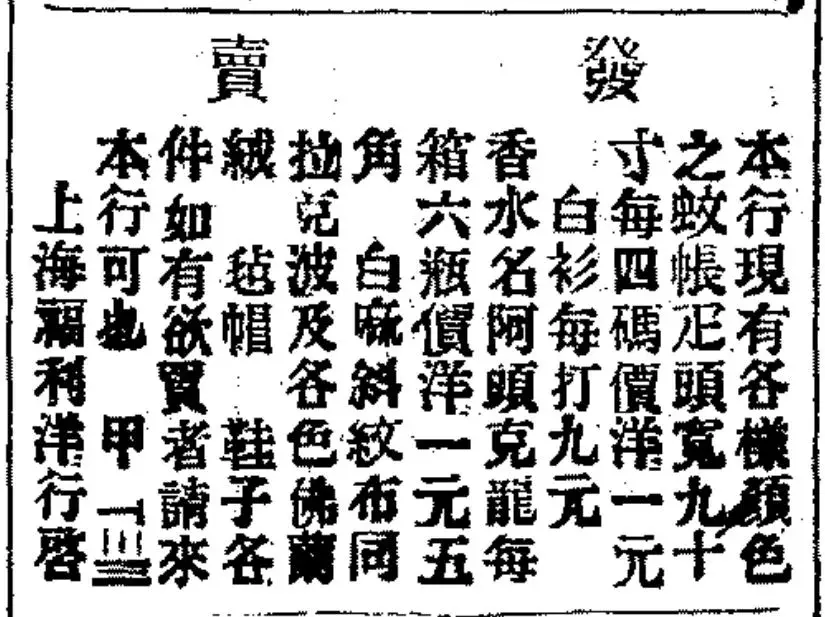 發賣
本行現有各樣顏色
之蚊帳疋頭寬九十
寸每四碼價洋一元
白衫每打九元
香水名阿頭克龍每
箱六瓶價洋一元五
角　白麻斜紋布同
拉波及各色佛蘭
絨　毡帽　鞋子各
件如有欲買者請來
本行可也　甲
上海福利洋行啓